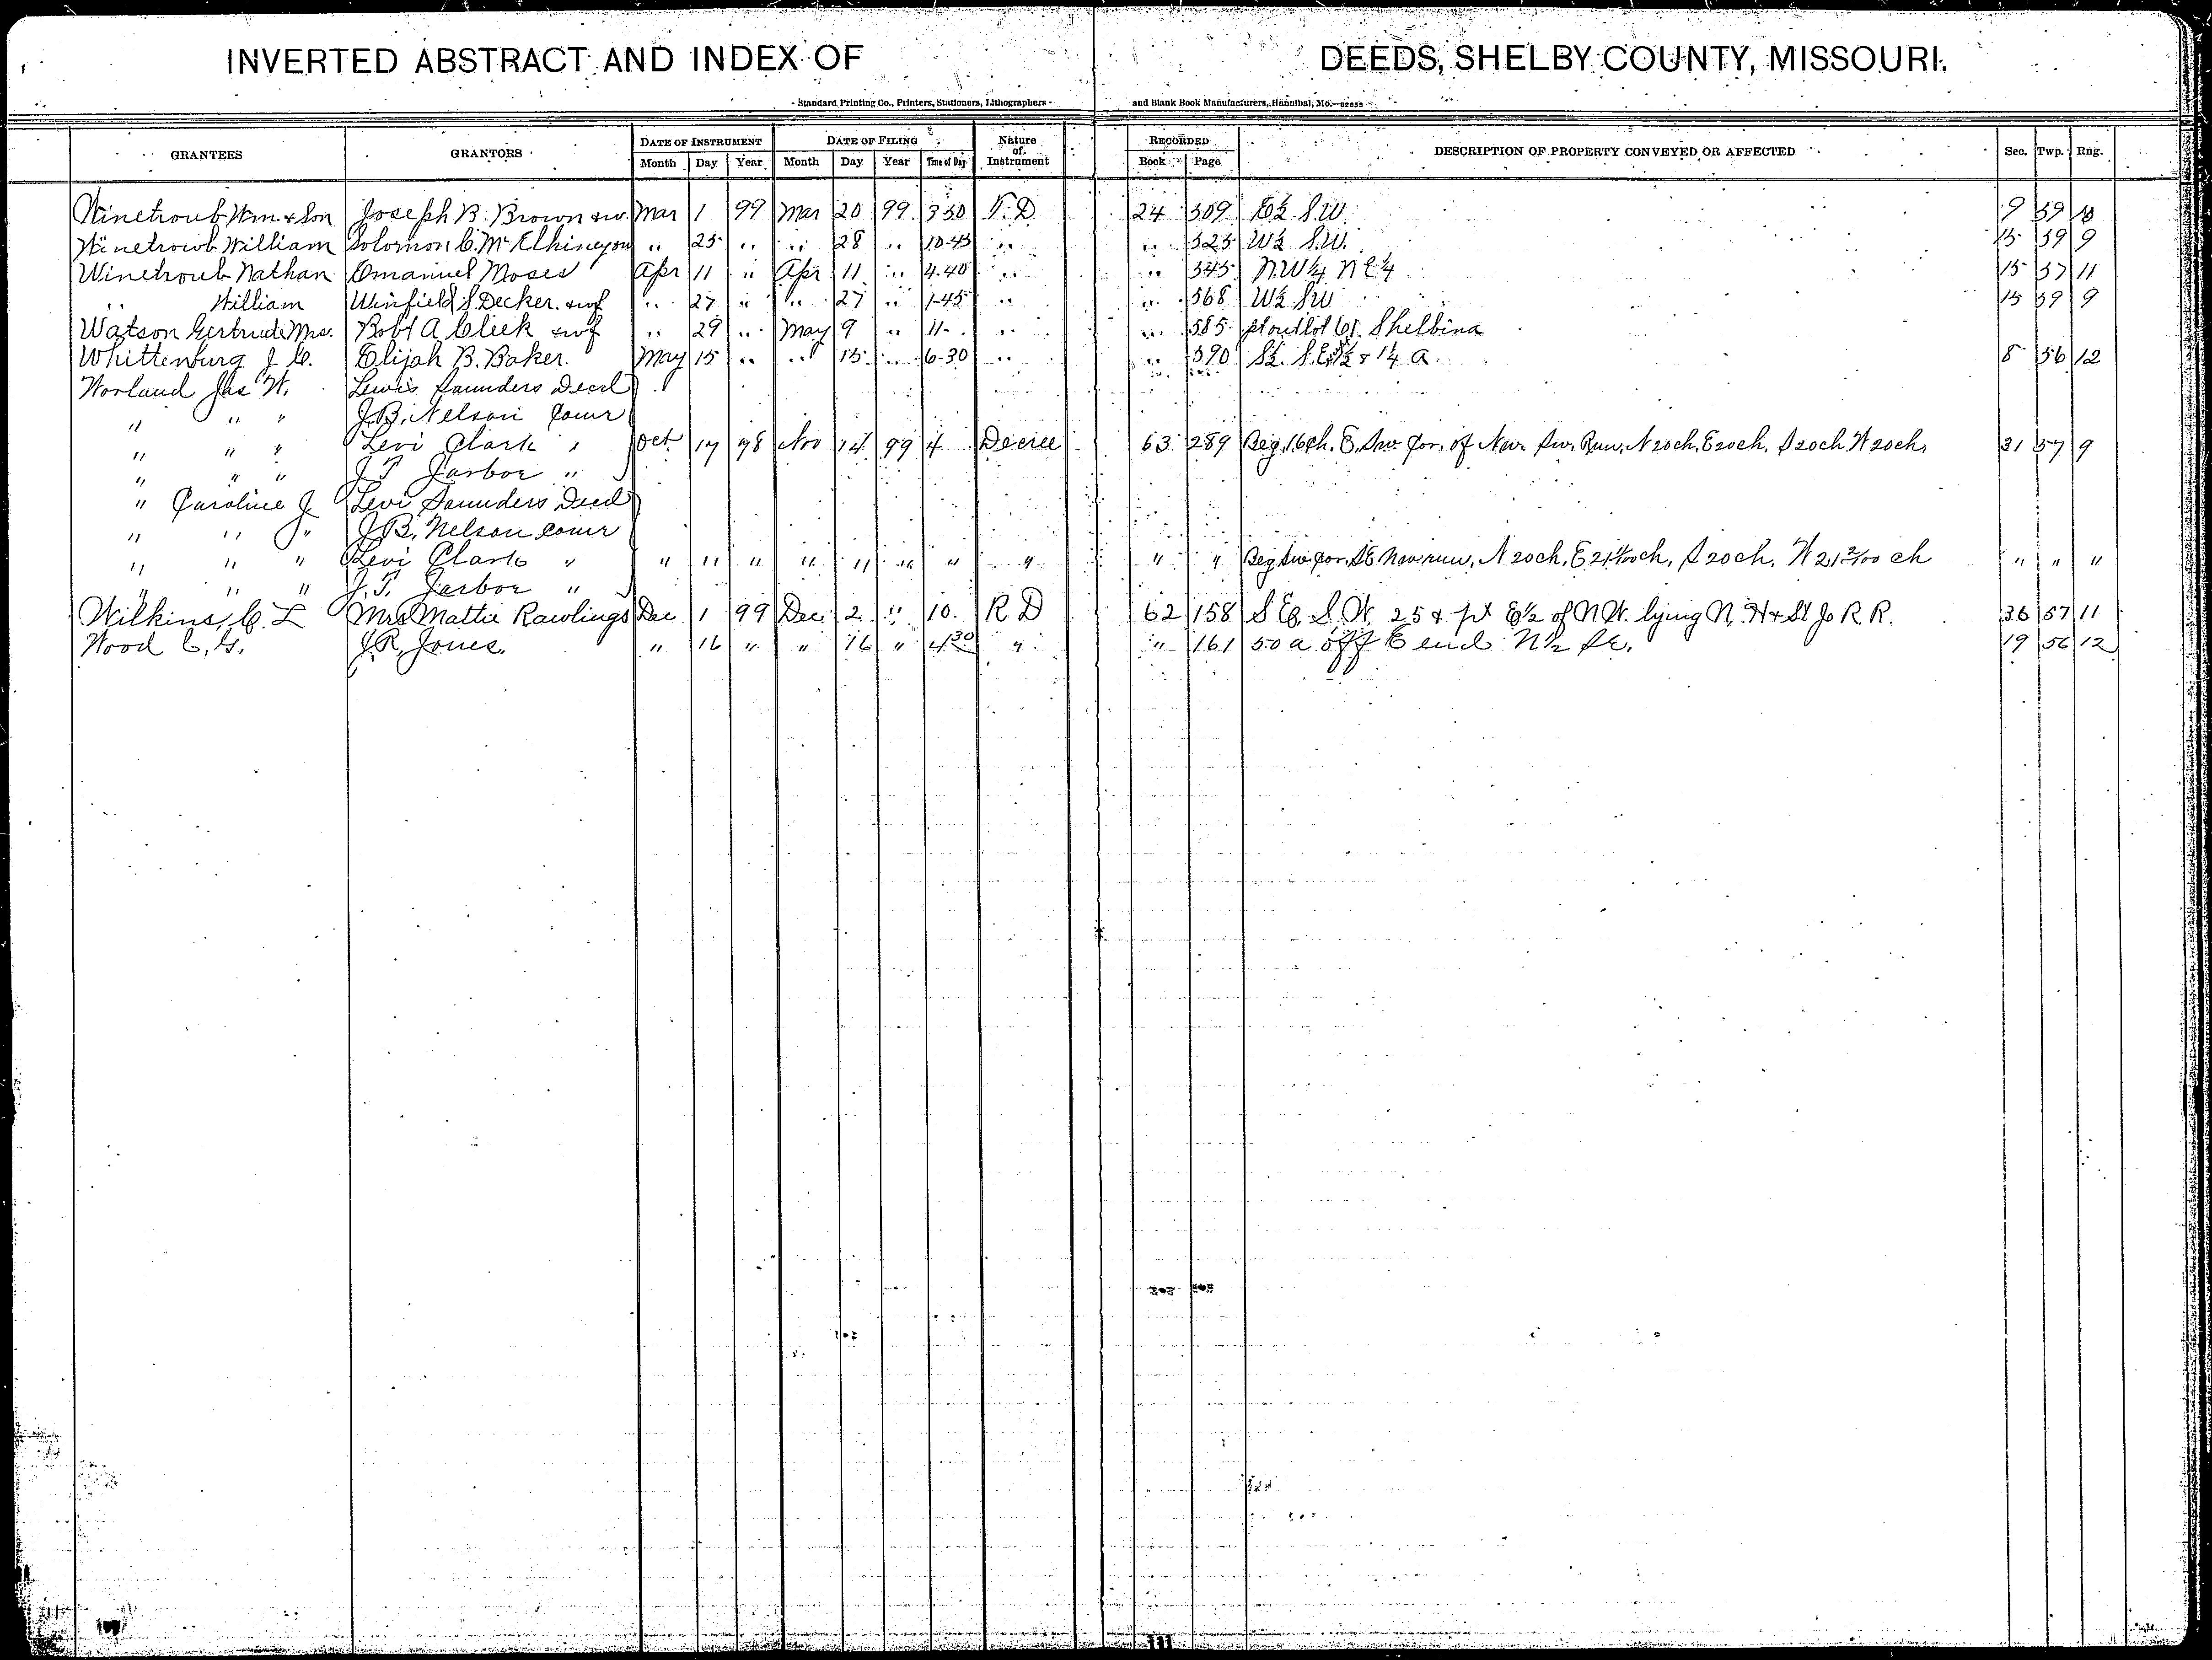 INVERTED ABSTRACT AND INDEX OF DEEDS, SHELBY COUNTY, MISSOURI.
Standard Printing Co., Printers, Stationers, Lithographers and Blank Book Manufacturers, Hannibal, Mo.
GRANTEES GRANTORS DATE OF INSTRUMENT DATE OF FILING Nature of Instrument RECORDED DESCRIPTION OF PROPERTY CONVEYED OR AFFECTED Sec. Twp. Rng.
Month Day Year Month Day Year Time of Day Book Page
Winetroub Wm. & Son Joseph B. Brown & w. Mar 1 99 Mar 20 99 3 30 T. D 24 309 E½ S.W. 9 59 10
Winetroub William Solomon C. Mc " 25 " " 28 " 10-45 " " 325 W½ S.W. 15 59 9
Winetroub Nathan Emanuel Moses Apr 11 " Apr 11 " 4.40 " " 345 N.W¼ N E¼ 15 57 11
" William Winfield S. Decker & wf " 27 " " 27 " 1-45 " " 368 W½ SW 15 59 9
Watson Gertrude Mrs. Robt A. Cleek & wf " 29 " May 9 " 11- " " 385 pt outlot 61 Shelbina
Whittenburg J. C. Elijah B. Baker. May 15 " " 15 " 6-30 " " 390 S½ S.E. & 1¼ a. 8 56 12
Worland Jas W. Lewis Saunders Decd
" " " J.B. Nelson Comr
" " " Levi Clark " Oct 17 98 Nov 14 99 4 Decree 63 289 Beg. 16ch. E. Sw Cor. of Nw. Sw. Run, N 20ch, E 20ch, S 20ch W 20ch. 31 57 9
" " " J T Jarbor "
" Caroline J. Levi Saunders Decd
" " J " J.B. Nelson comr
" " " Levi Clark " " " " " " " " " " " Beg Sw Cor. SE Nw run, N 20ch, E 21 2/100 ch, S 20ch. W 21 2/100 ch " " "
" " " J. T. Jarbor "
Wilkins, C. L Mrs Mattie Rawlings Dec 1 99 Dec 2 " 10. R D 62 158 S E, S. W. 25 & pt E½ of N W. lying N. H & St Jo R R. 36 57 11
Wood C. G. J. R. Jones. " 16 " " 16 " 4 30 " " 161 50 a off E end N½ Se. 19 56 12